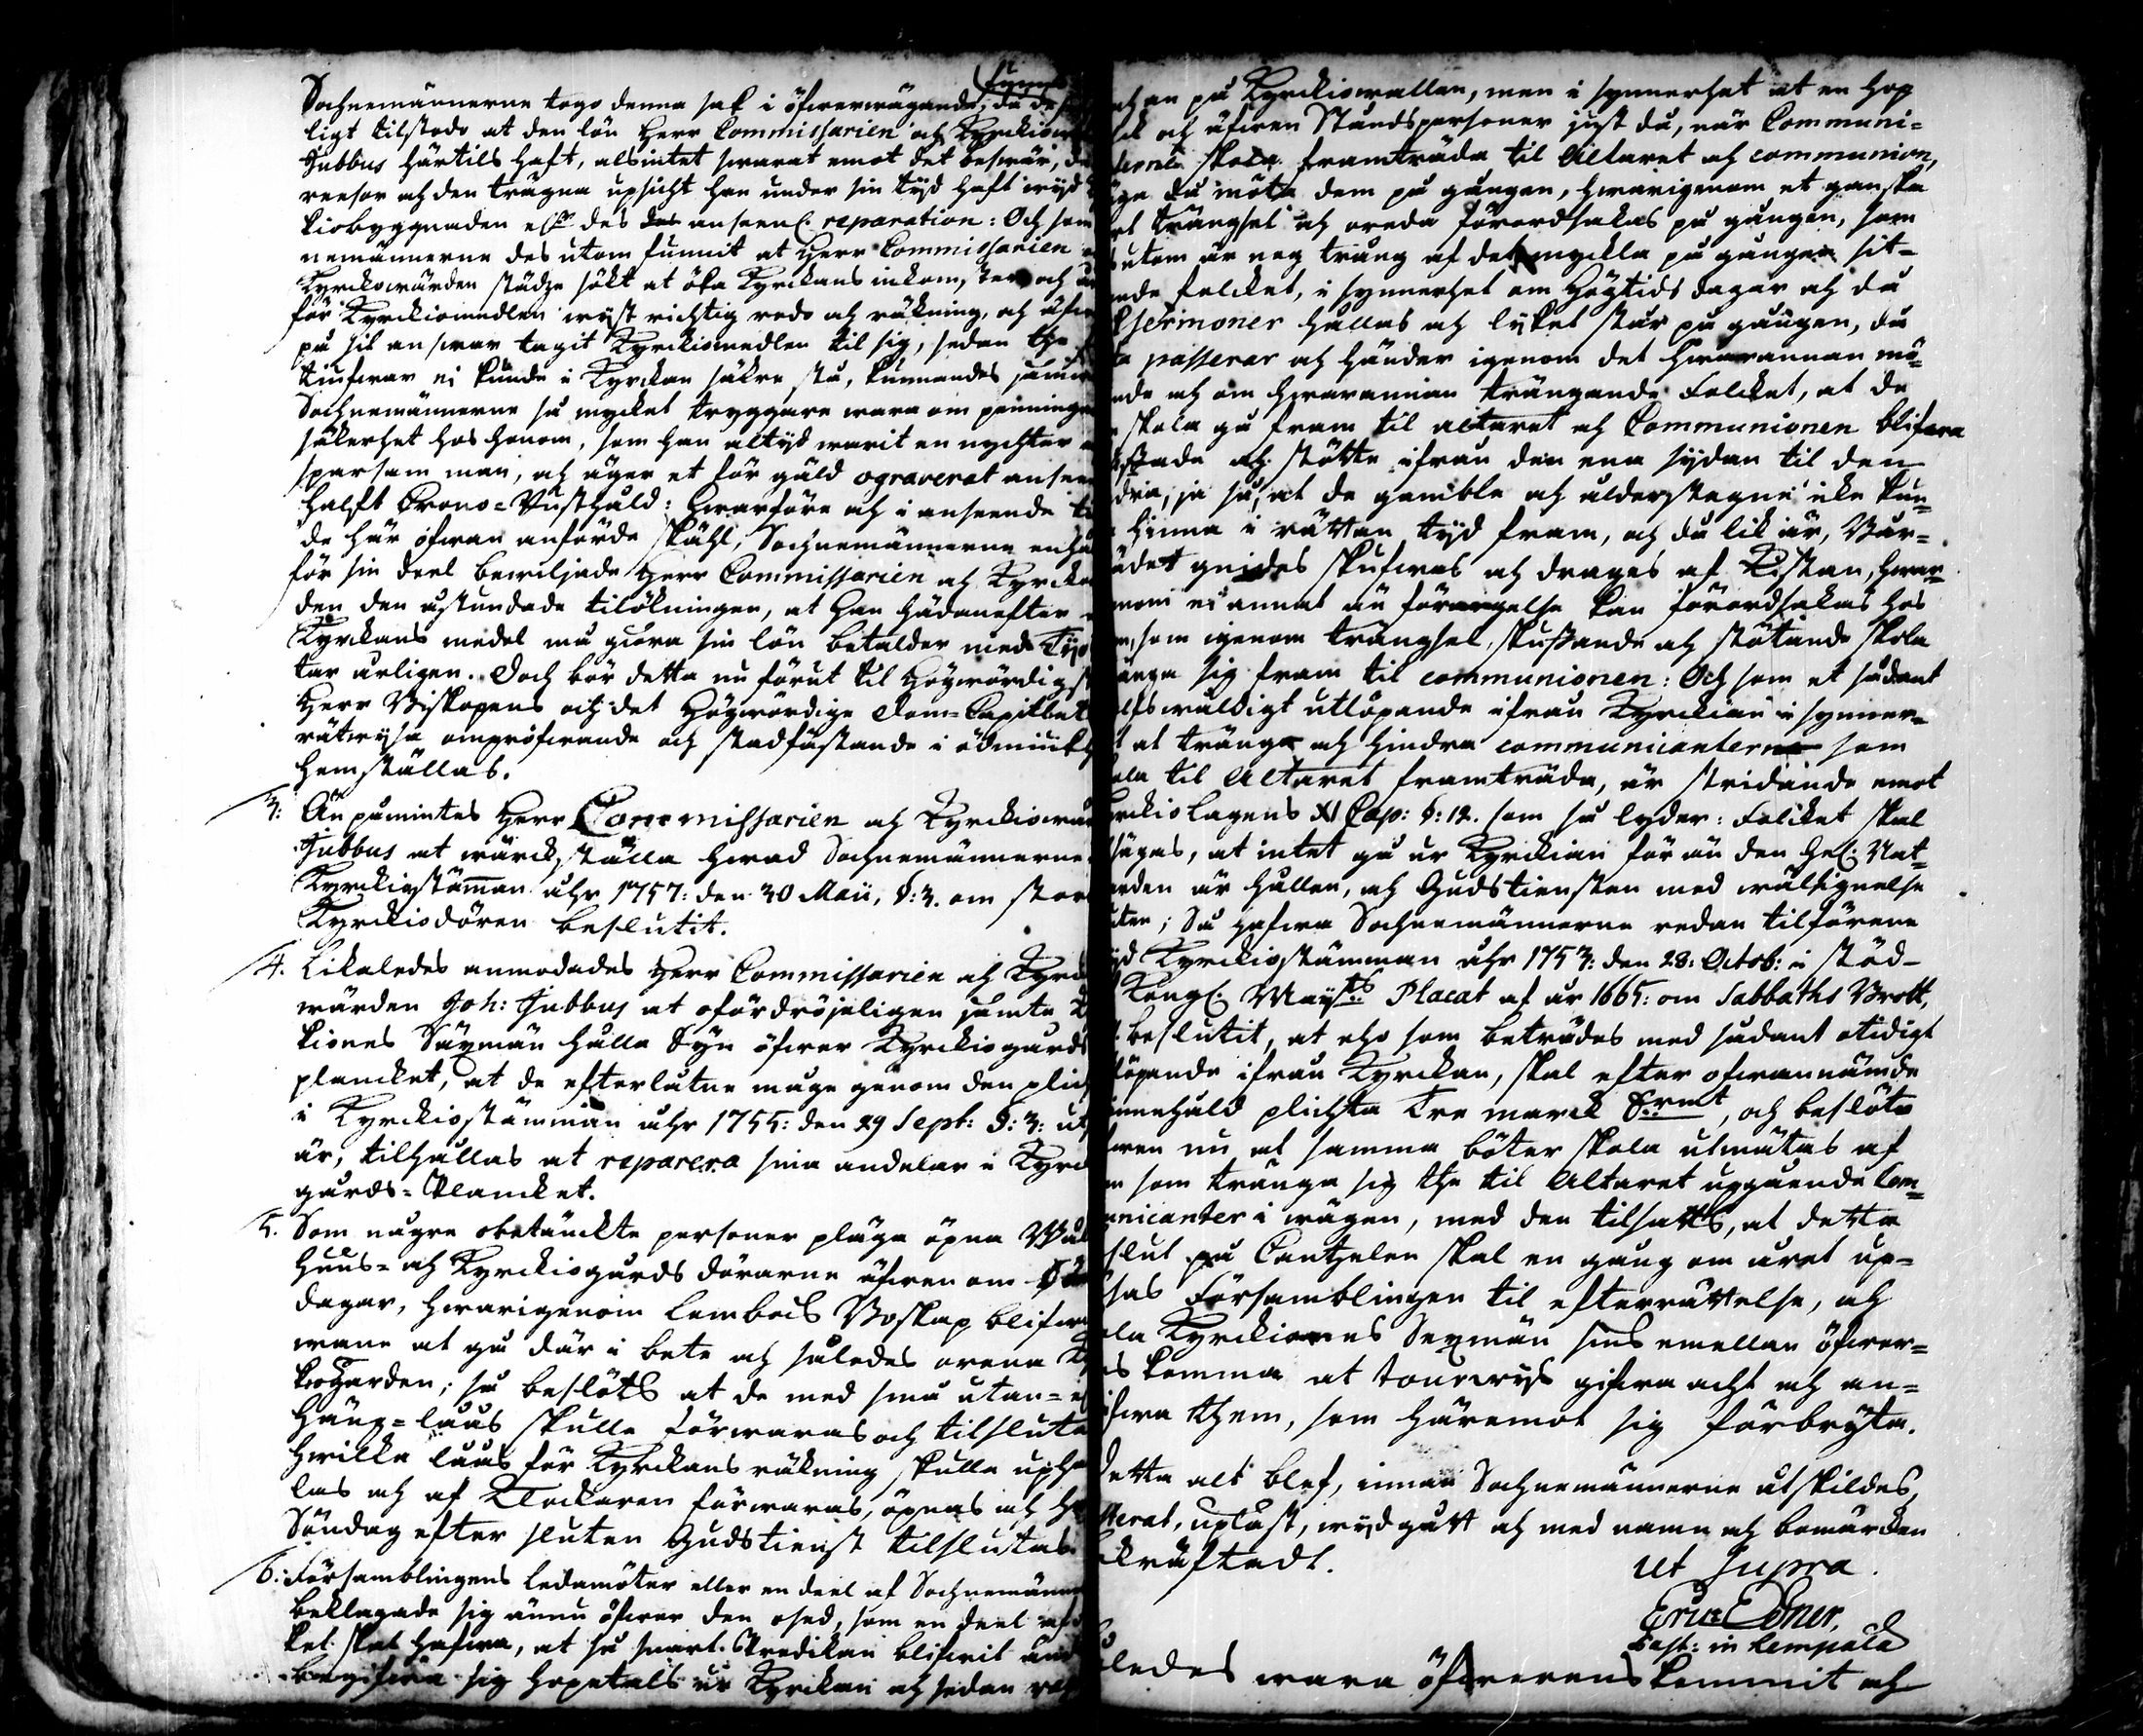 Sochnemännerne togo denna sak i öfwerwägande, då de
ligt tilstodo at den lön Herr Commissarien och Kyrckiow
Jubbus härtils haft, alsintet swarat emot det beswär, de
resor och den trägna upsicht han under sin tijd haft wijd
kiobyggnaden och des anseenl. reparation: Och som
nemännerne des utom funnit at Herr Commissarien
Kyrckowärden städze sökt at öka Kyrckans inkomster och
för Kyrckiomedlen wijst richtig redo och räkning, och äfwen
på sit answar tagit Kyrckiomedlen til sig, sedan the
tiufwar ej kunde i Kyrckan säkre stå, kunnandes
Sochnemännerne så mycket tryggare wara om penninga
säkerhet hos honom, som han altijd warit en nychter
sparsam man, och äger et för gäld ograverat
halft Crono-Rusthåld: hwarföre och i anseende
de här ofwan anförde skähl, Sochnemännerne
för sin deel bewiljade Herr Commissarien och Kyrcko
den den åstundade tilökningen, at han hädanefter
Kyrckans medel må giöra sin lön betalder med Tijo
ler årligen. Doch bör detta nu förut til Högwördigst
Herr Biskopens och det Högwördige Dom-Capitlet
rätwijsa ompröfwande och stadfästande i ödmiukh
hemställas.
3: Än påmintes Herr Commissarien och Kyrckiowär
Jubbus at wärckställa hwad Sochnemännerne
Kyrckiostämman åhr 1757: den 30 Maii, §: 3. om stor
Kyrckiodören beslutit.
4. Likaledes anmodades Herr Commissarien och Kyrck
wärden Joh: Jubbus at ofördröjeligen jämte K
kiones Säxmän hålla Syn öfwer Kyrckiogårds
plancket, at de efterlåtne måge genom den plick
i Kyrckiostämman åhr 1755: den 29 Sept: §: 3: ut
är, tilhållas at reparera sina andelar i Kyrck
gårds-Plancket.
5. Som någre obetänckte personer pläga öpna
Huus- och Kyrckiogårds dörarne äfwen om
dagar, hwarigenom Lembocks Boskap blifwa
wane at gå där i bete och således orena
kogården; så beslöts at de med små utan-
häng-låås skulle förwaras och tilslutas
hwilka låås för Kyrckans räkning skulle
las och af Klockaren förwaras, öpnas och
Söndag efter sluten Gudstienst tilslutas.
6: Församblingens ledamöter eller en deel af Sochnemänne
beklagade sig ännu öfwer den osed, som en deel af
ket skal hafwa, at så snart Predikan blifwit
begifwa sig hopetals ur Kyrckan och sedan
an på Kyrckiowallen, men i synnerhet at en hop
och äfwen Ståndspersoner just då, när Communi-
skola framträda til Altaret och communion,
då möta dem på gången, hwarigenom et ganska
trängsel och oreda förordsakas på gången, som
utom är nog trång af det myckla på gången sit-
ende folcket, i synnerhet om Högtids dagar och då
sermoner hållas och lijket står på gången, då
passerar och händer igenom det hwarannan mö-
nde och om hwarannan trängande Folcket, at de
skola gå fram til altaret och Communionen blifwa
stade och stötte ifrån den ena sijdan til den
dra, ja så, at de gamble och ålderstegne icke kun-
hinna i rättan tijd fram, och då lik är, Bår-
ädet gnides skufwas och drages af Kistan, hwar-
moni ej annat än förargelse kan förordsakas hos
, som igenom trängsel, skuffande och stötande skola
änga sig fram til communionen: Och som et sådant
elfswåldigt utlöpande ifrån Kyrckian i synner-
t at tränga och hindra communicanterne som
ola til Altaret framträda, är stridande emot
yrckiolagens XI Cap: §: 12. som så lyder: Folcket skal
säjas, at intet gå ur Kyrckian för än den hel: Nat-
arden är hållen, och Gudstiensten med wälsignelse
uten; Så hafwa Sochnemännerne redan tilförene
id Kyrckiostämman åhr 1753: den 28: Octob: i stöd
Kongl. Maij:ts Placat af år 1665: om Sabbaths Brott,
beslutit, at eho som beträdes med sådant otidigt
löpande ifrån Kyrckan, skal efter ofwannämde
innehåld plichta Tre marck S:rmt, och beslöto
wen nu at samma böter skola utmätas af
m som tränga sig the til Altaret uppgående Com-
unicanter i wägen, med den tilsatts, at detta
slut på Cantzelen skal en gång om året up-
sas Församblingen til efterrättelse, och
ola Kyrckiones Sexmän sins emellan öfwer-
ns komma at tourewijs gifwa acht och an-
gifwa them, som häremot sig förbryta.
Detta alt blef, innan Sochnemännerne utskildes,
terat, uplåst, wijdgått och med namn och bomärken
ekräftadt.
ut supra.
Eric Ebner.
Past: in Lempälä
åledes wara öfwerenskommit och